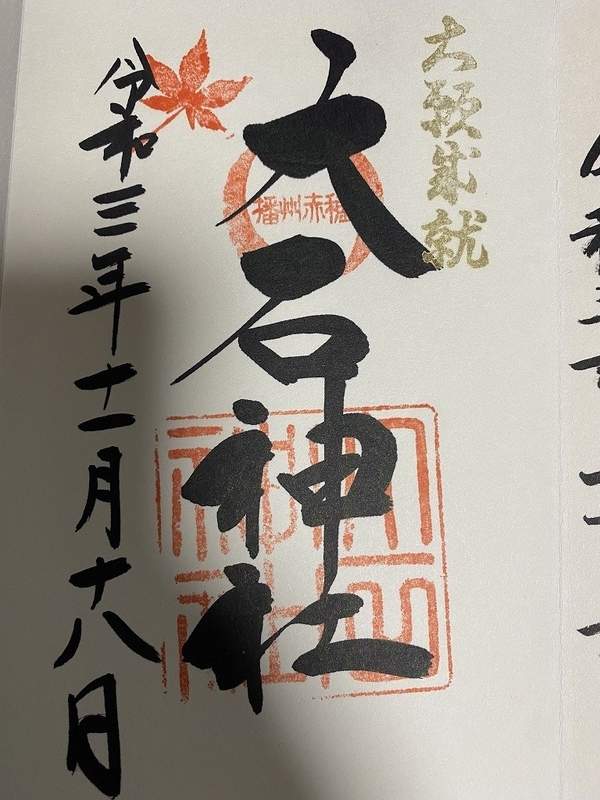 大願成就
播州赤穂
大石神社
大石神社
令和三年十一月十八日